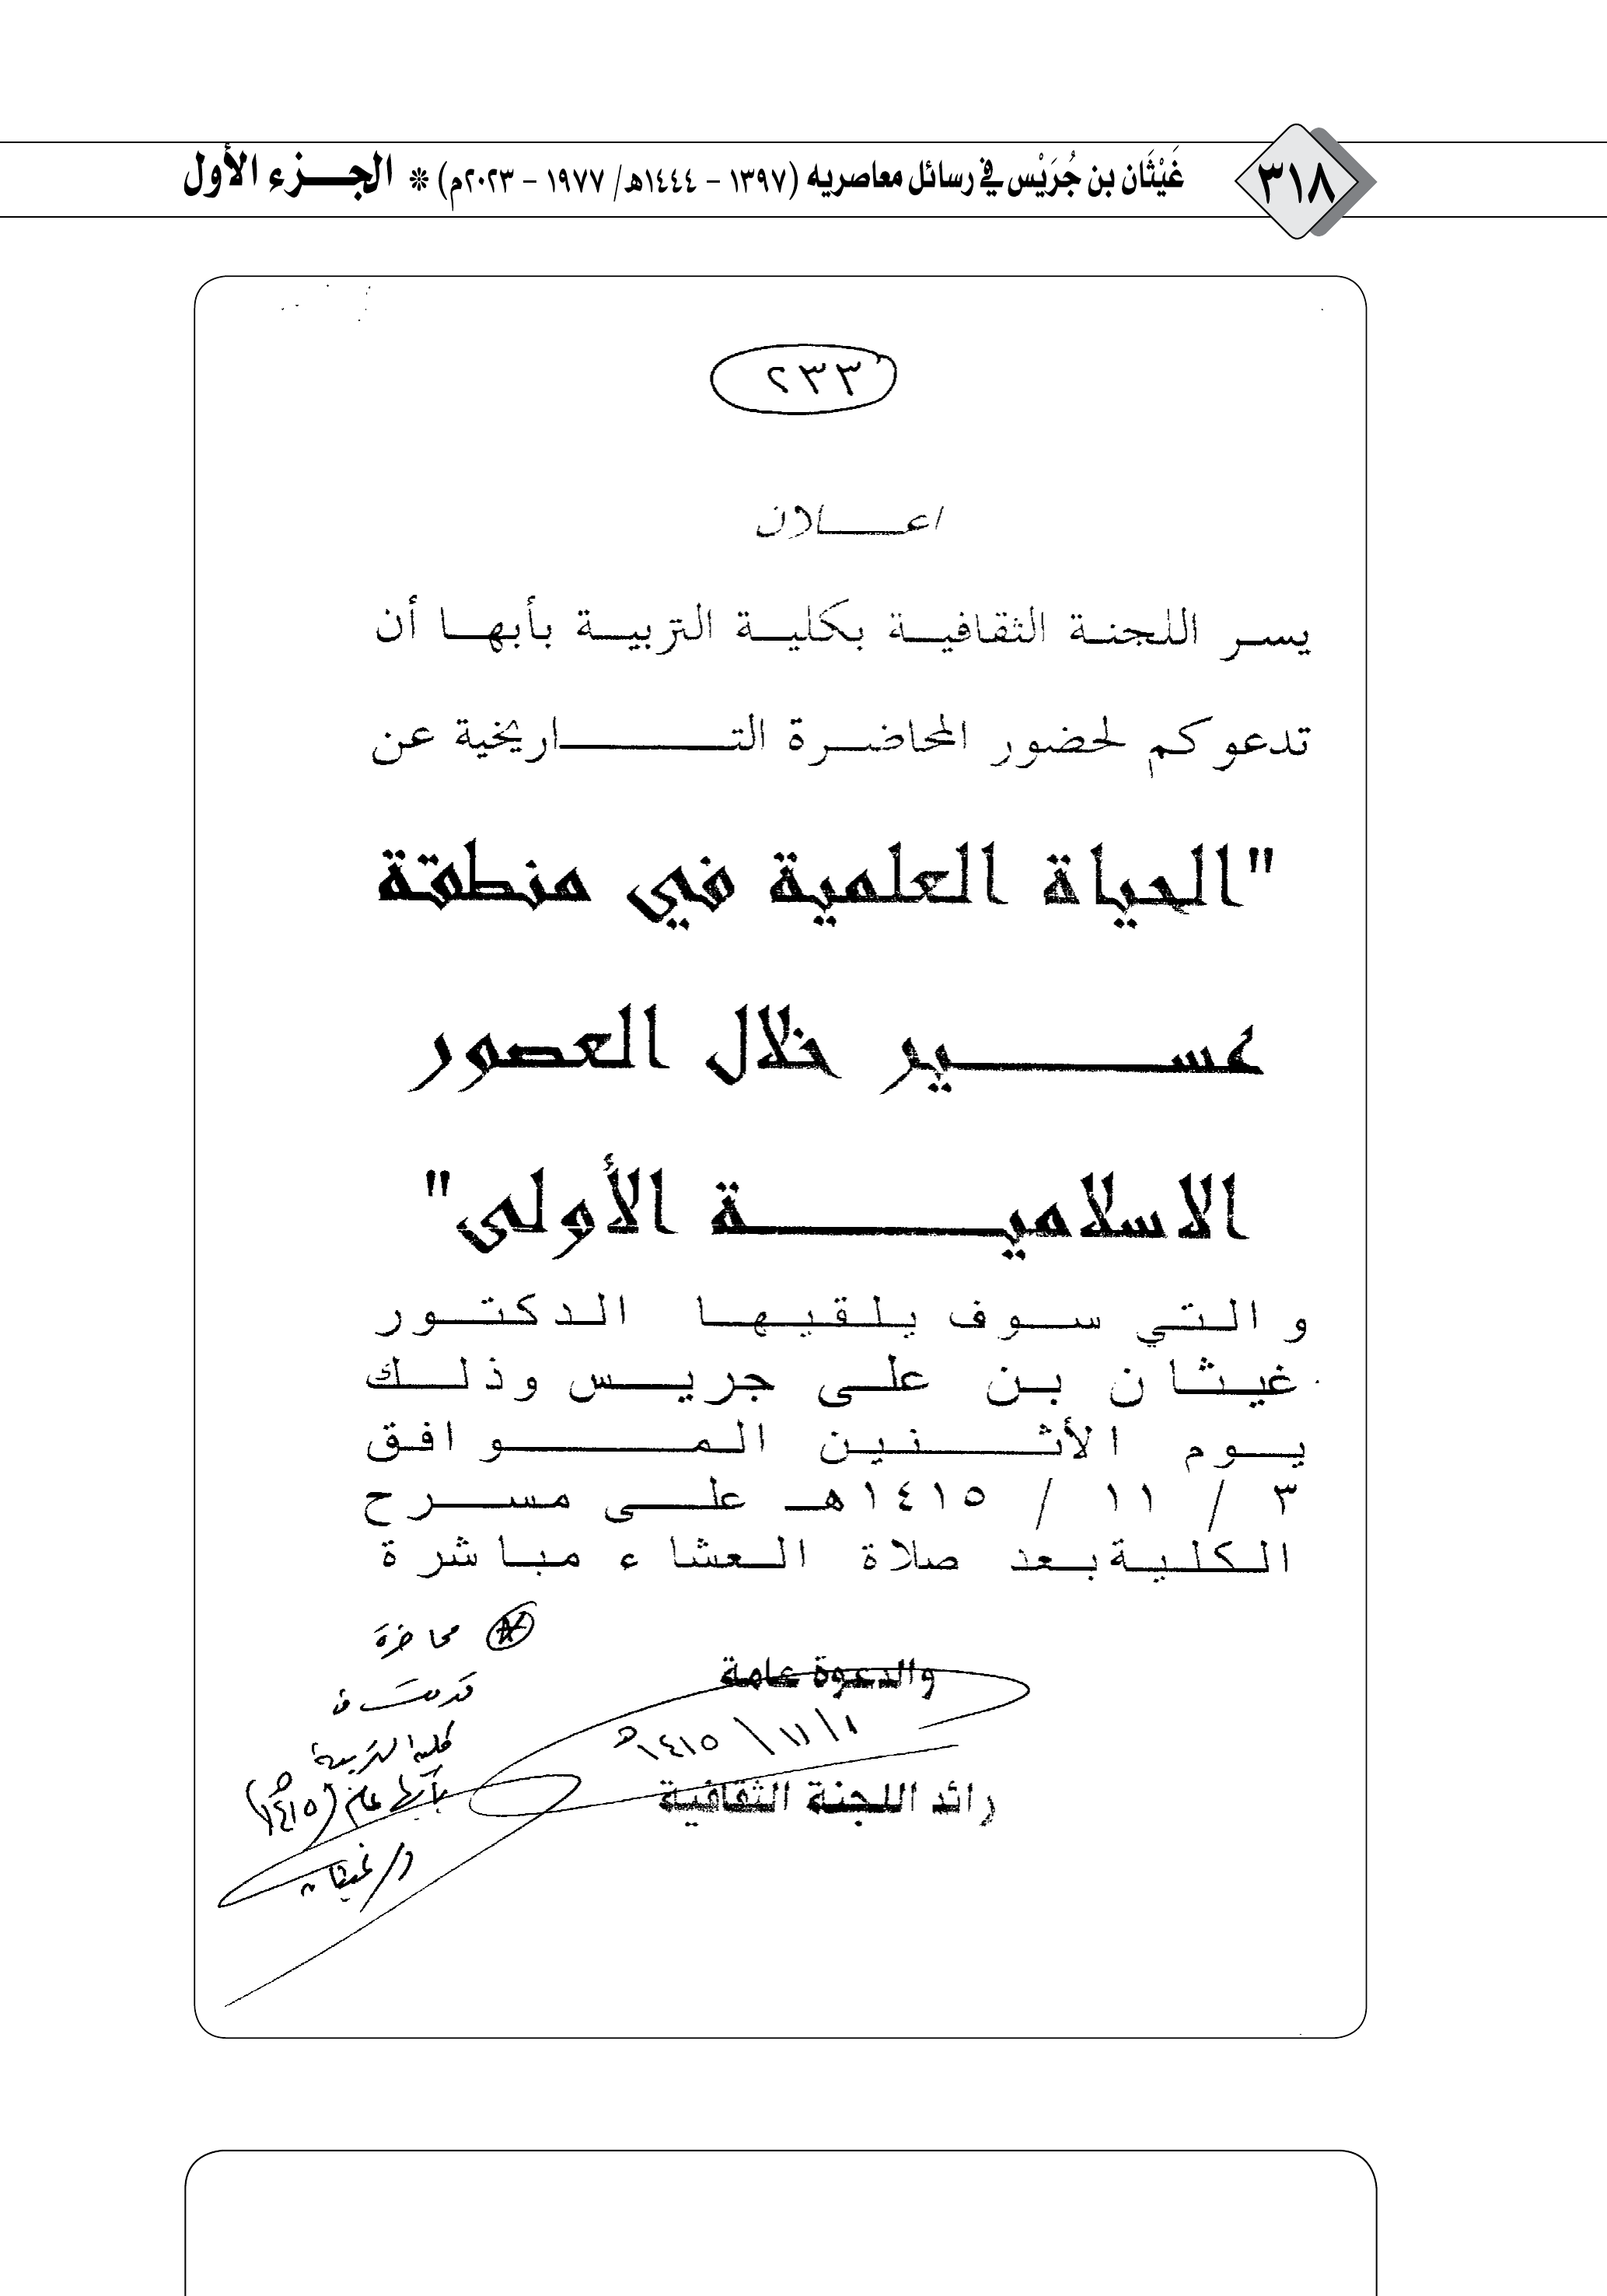 ٣١٨
غَيْثَان بن جُرَيْس في رسائل معاصريه (١٣٩٧ - ١٤٤٤هـ/ ١٩٧٧ - ٢٠٢٣م) ❊ الجـزء الأول
٢٣٣
اعـــلان
يسر اللجنة الثقافية بكلية التربية بأبها أن
تدعوكم لحضور المحاضرة التـــاريخية عن
"الحياة العلمية في منطقة
عســـير خلال العصور
الاسلاميـــة الأولى"
والتي سوف يلقيها الدكتور
غيثان بن على جريس وذلك
يوم الأثنين الموافق
٣ / ١١ / ١٤١٥هـ على مسرح
الكلية بعد صلاة العشاء مباشرة
والدعوة عامة
١٤١٥/١١/١هـ
رائد اللجنة الثقافية
محاضرة
قدمت في
كلية التربية
بأبها عام (١٤١٥هـ)
د/ غيثان